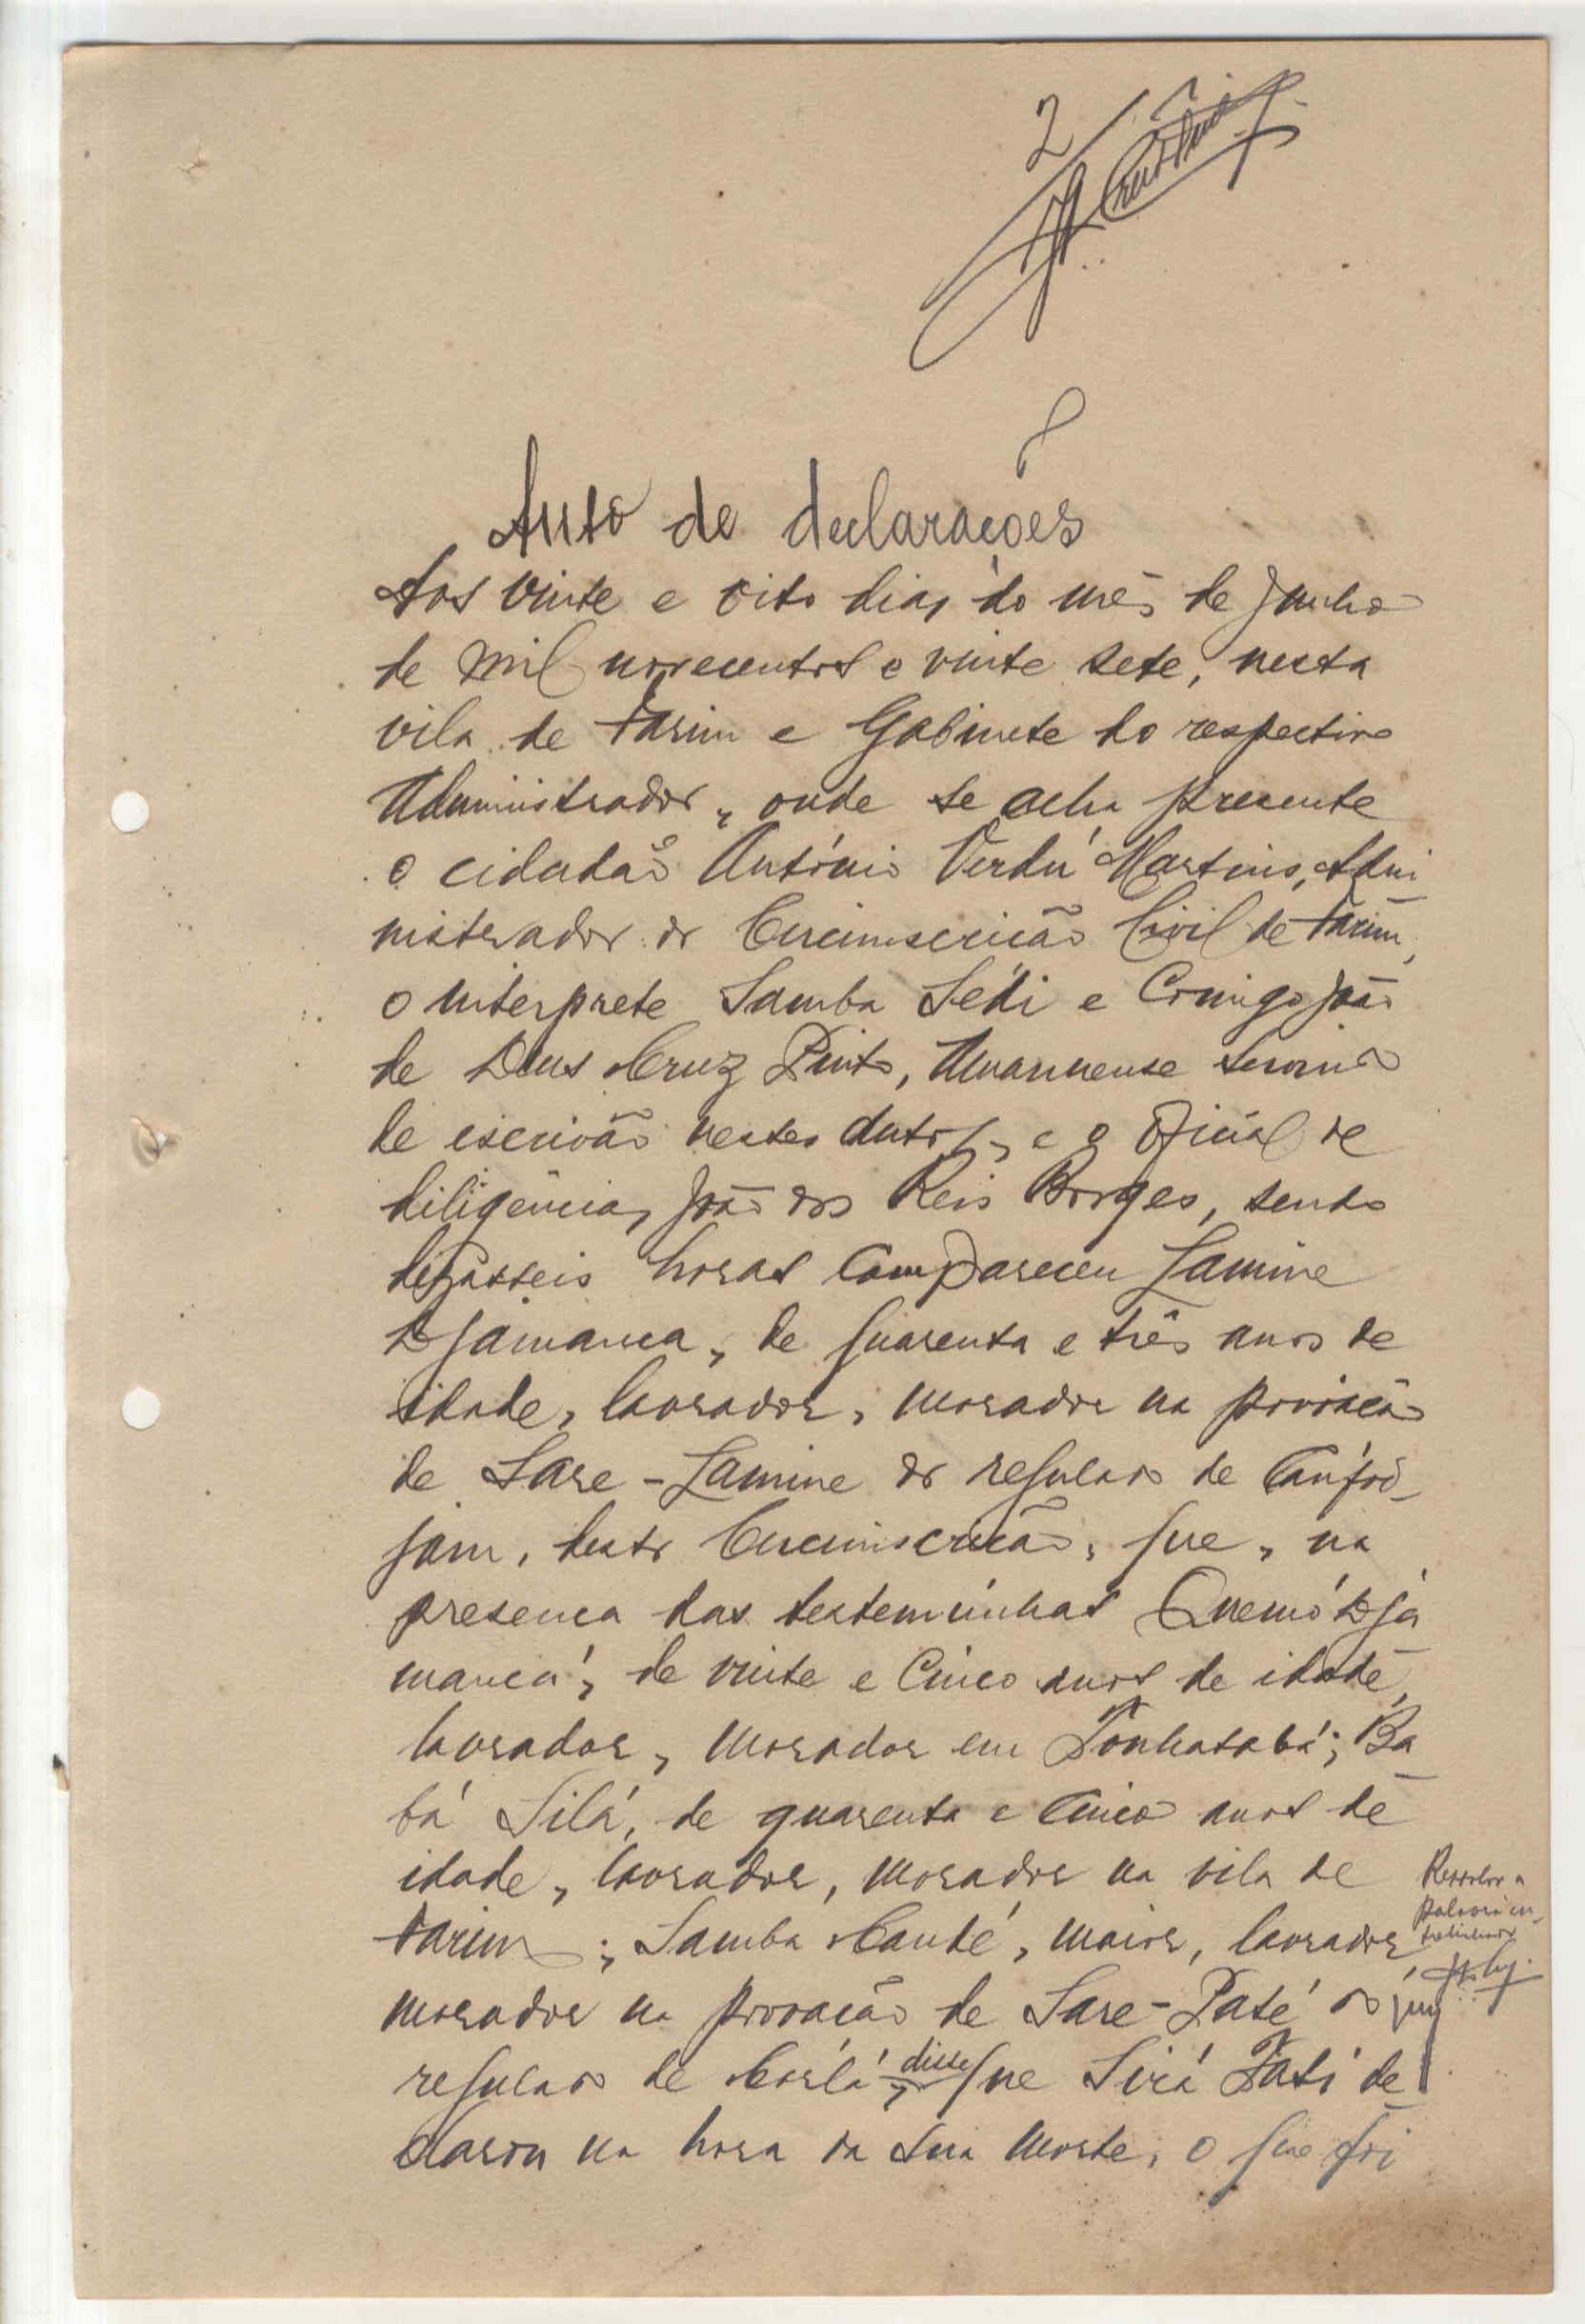 2
Auto de declarações
Aos vinte e oito dias do mês de Junho
de mil novecentos e vinte sete, nesta
vila de Farim e Gabinete do respectivo
Administrador, onde se acha presente
o cidadão António Verdú Martins, Admi
nistrador da Circunscrição Civil de Farim,
o interprete Samba Sédi e Comigo João
de Deus Cruz Pinto, Amanuense servindo
de escrivão nestes autos, e o oficial de
diligências João dos Reis Borges, sendo
dezasseis horas compareceu Lamine
Djamanca, de quarenta e três anos de
idade, lavrador, morador na povoação
de Sare-Lamine do regulado de
jam, desta Circunscrição, que, na
presença das testemúnhas Quemó Dja
mancá, de vinte e cinco anos de idade,
lavrador, morador em ; Ba
bá Silá, de quarenta e cinco anos de
idade, lavrador, morador na vila de
Farim; Samba Candé, maior, lavrador,
morador na povoação de Sare-Paté do
regulado de , disse que Sirá Fati de
clarou na hora da sua morte, o que foi
Ressalvo a
palavra en-
trelinhada